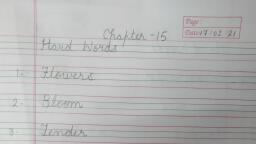 Page:
Chapter - 15
Date: 17/02/21
Hard Words
1. Flowers
2. Bloom
3. Tender